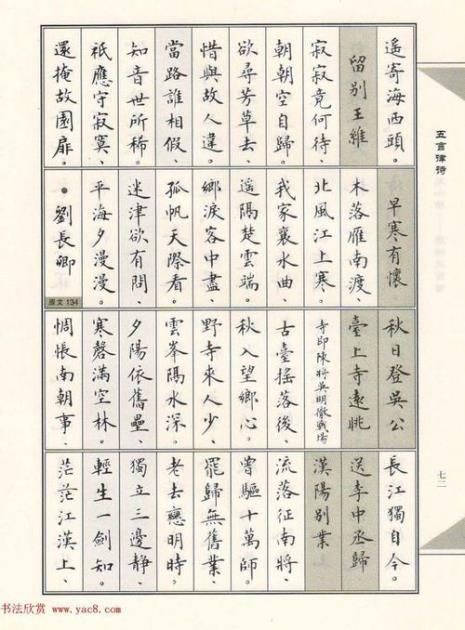 五言律诗
遙寄海西頭。
留別王維
寂寂竟何待、
朝朝空自歸。
欲尋芳草去、
惜與故人違。
當路誰相假、
知音世所稀。
祇應守寂寞、
還掩故園扉。
早寒有懷
木落雁南渡、
北風江上寒。
我家襄水曲、
遥隔楚雲端。
鄉淚客中盡、
孤帆天際看。
迷津欲有問、
平海夕漫漫。
•劉長卿
原文 134
秋日登吳公
臺上寺遠眺
寺即陳將吳明徹戰場
古臺摇落後、
秋入望鄉心。
野寺來人少、
雲峯隔水深。
夕陽依舊壘、
寒磬滿空林。
惆悵南朝事、
長江獨自今。
送李中丞歸
漢陽別業
流落征南將、
曾驅十萬師。
罷歸無舊業、
老去戀明時。
獨立三邊靜、
輕生一劍知。
茫茫江漢上、
七二
书法欣赏 www.yac8.com